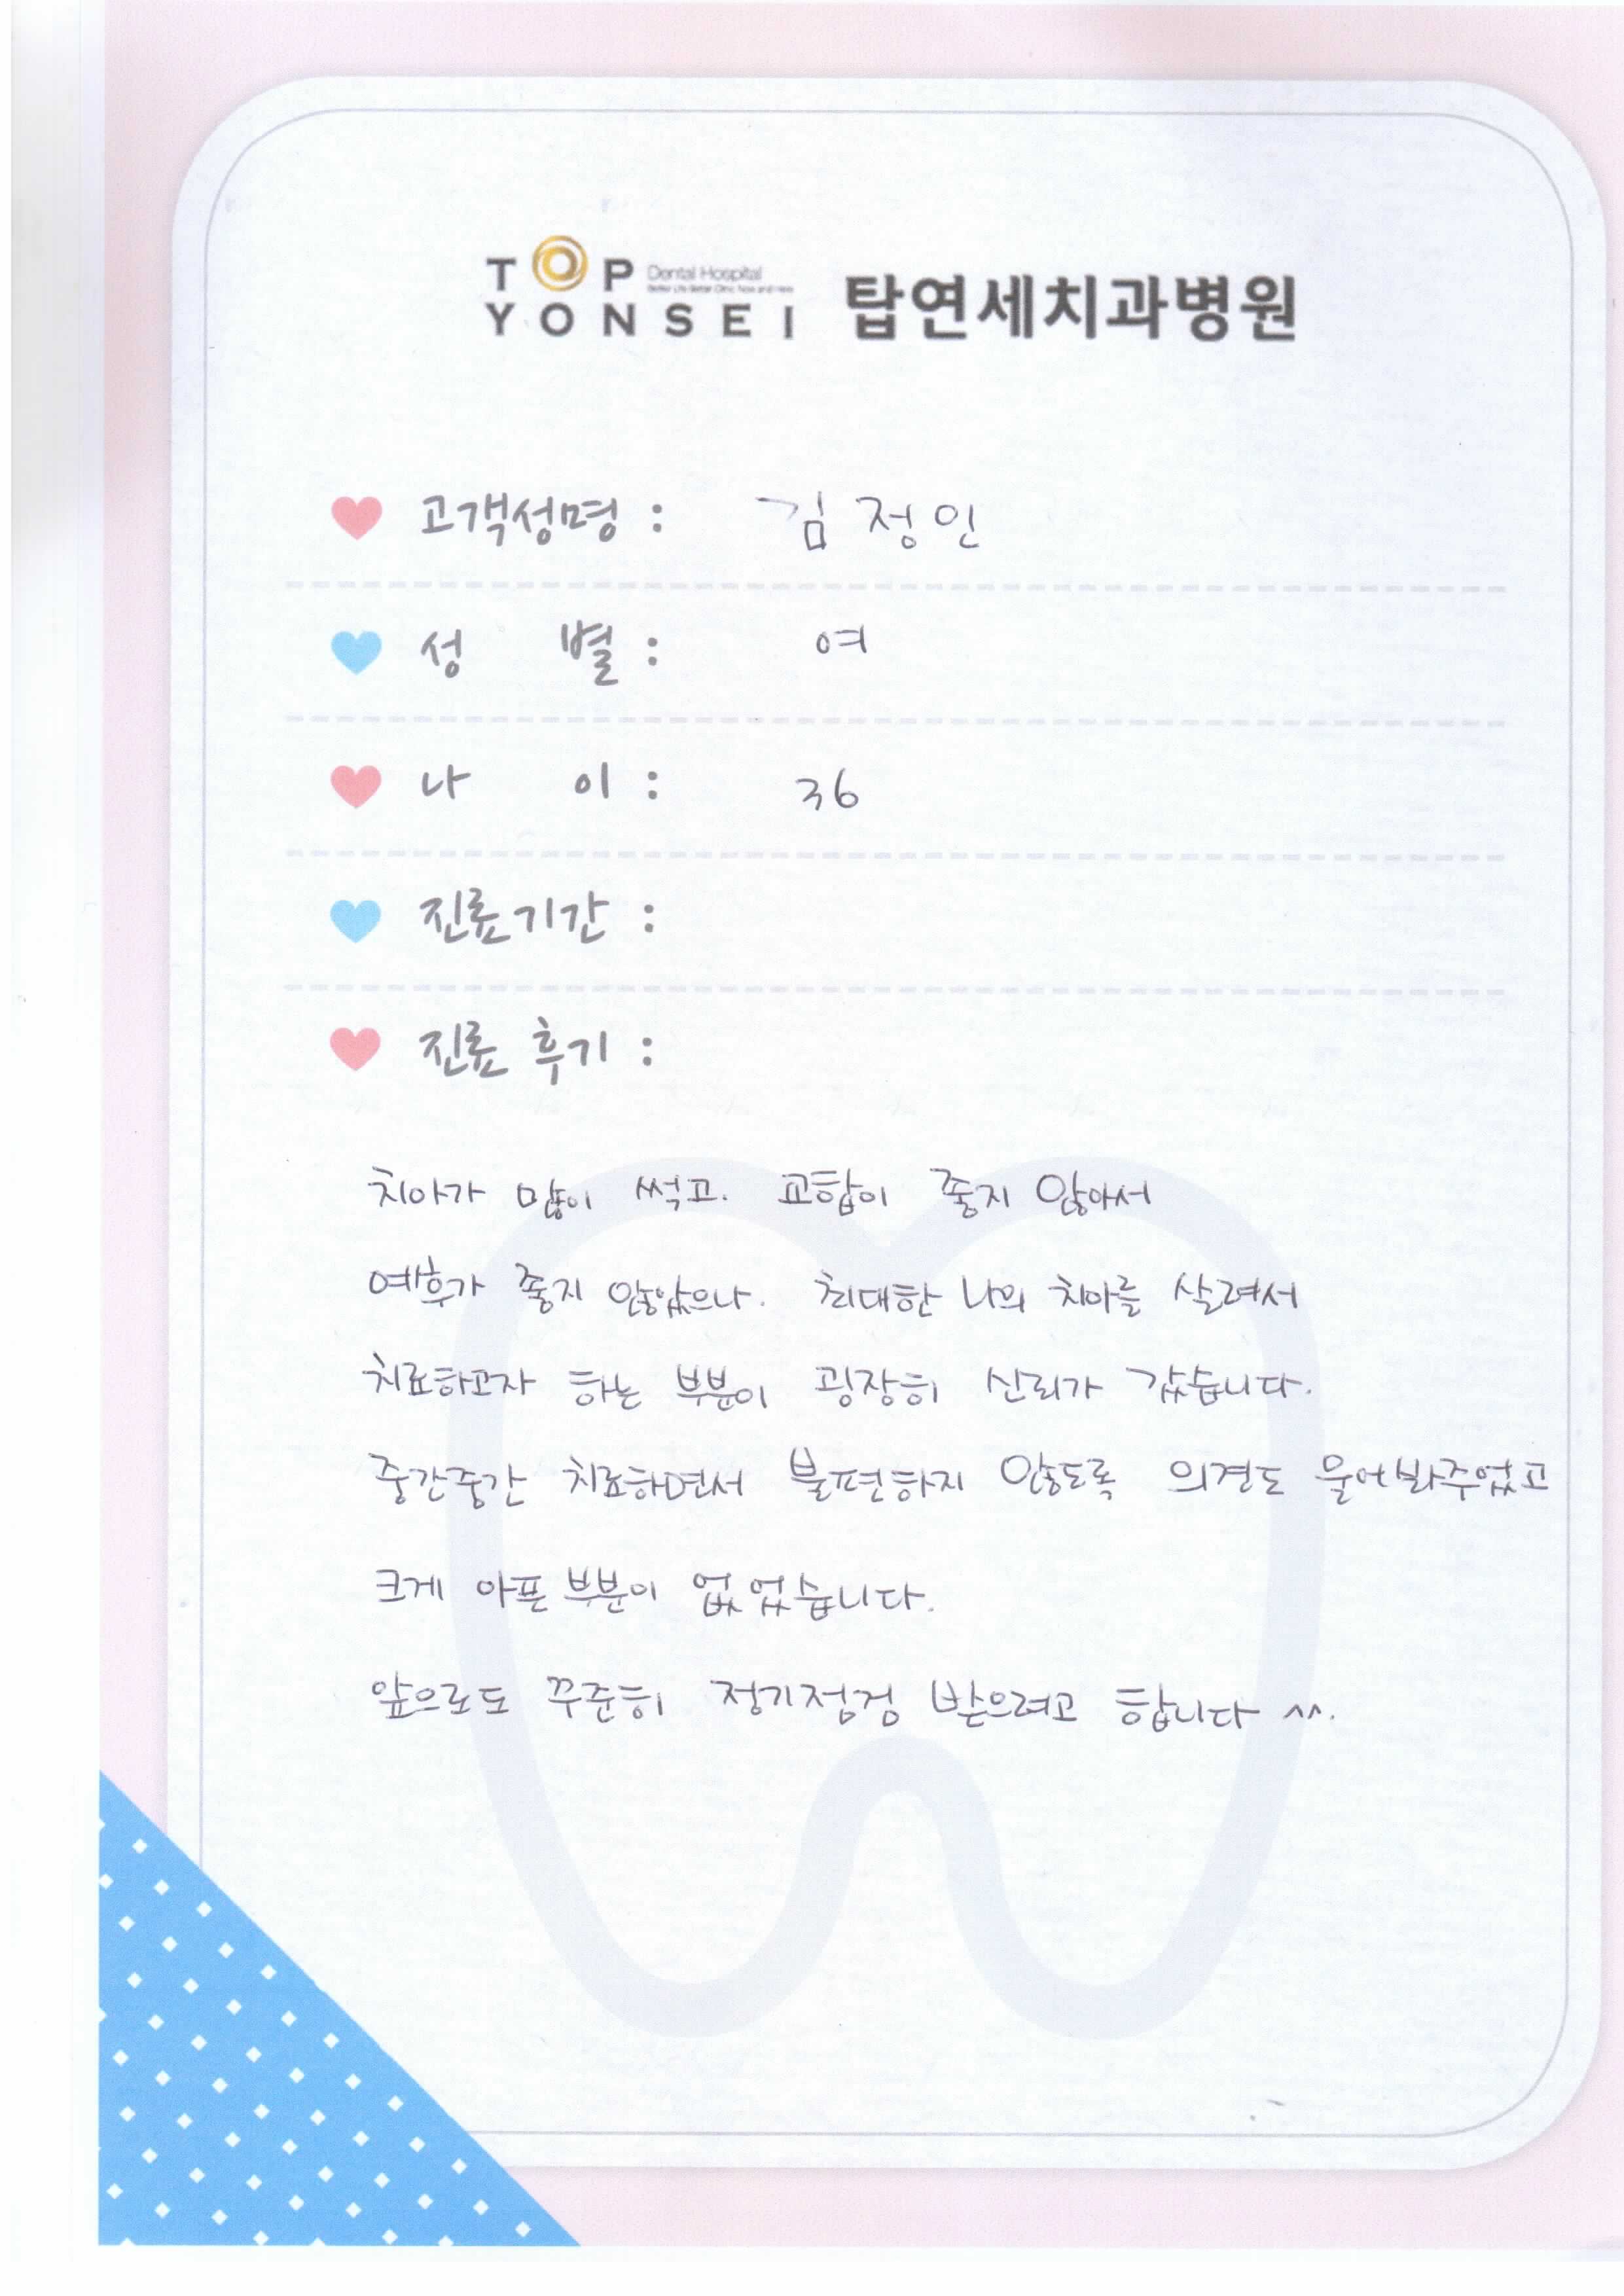 TOP Dental Hospital
YONSEI 탑연세치과병원
고객성명 : 김정인
성 별 : 여
나 이 : 36
진료기간 :
진료 후기 :
치아가 많이 썩고. 교합이 좋지 않아서
예후가 좋지 않았으나. 최대한 나의 치아를 살려서
치료하고자 하는 부분이 굉장히 신뢰가 갔습니다.
중간중간 치료하면서 불편하지 않도록 의견도 물어봐주었고
크게 아픈 부분이 없었습니다.
앞으로도 꾸준히 정기점검 받으려고 합니다 ^^.